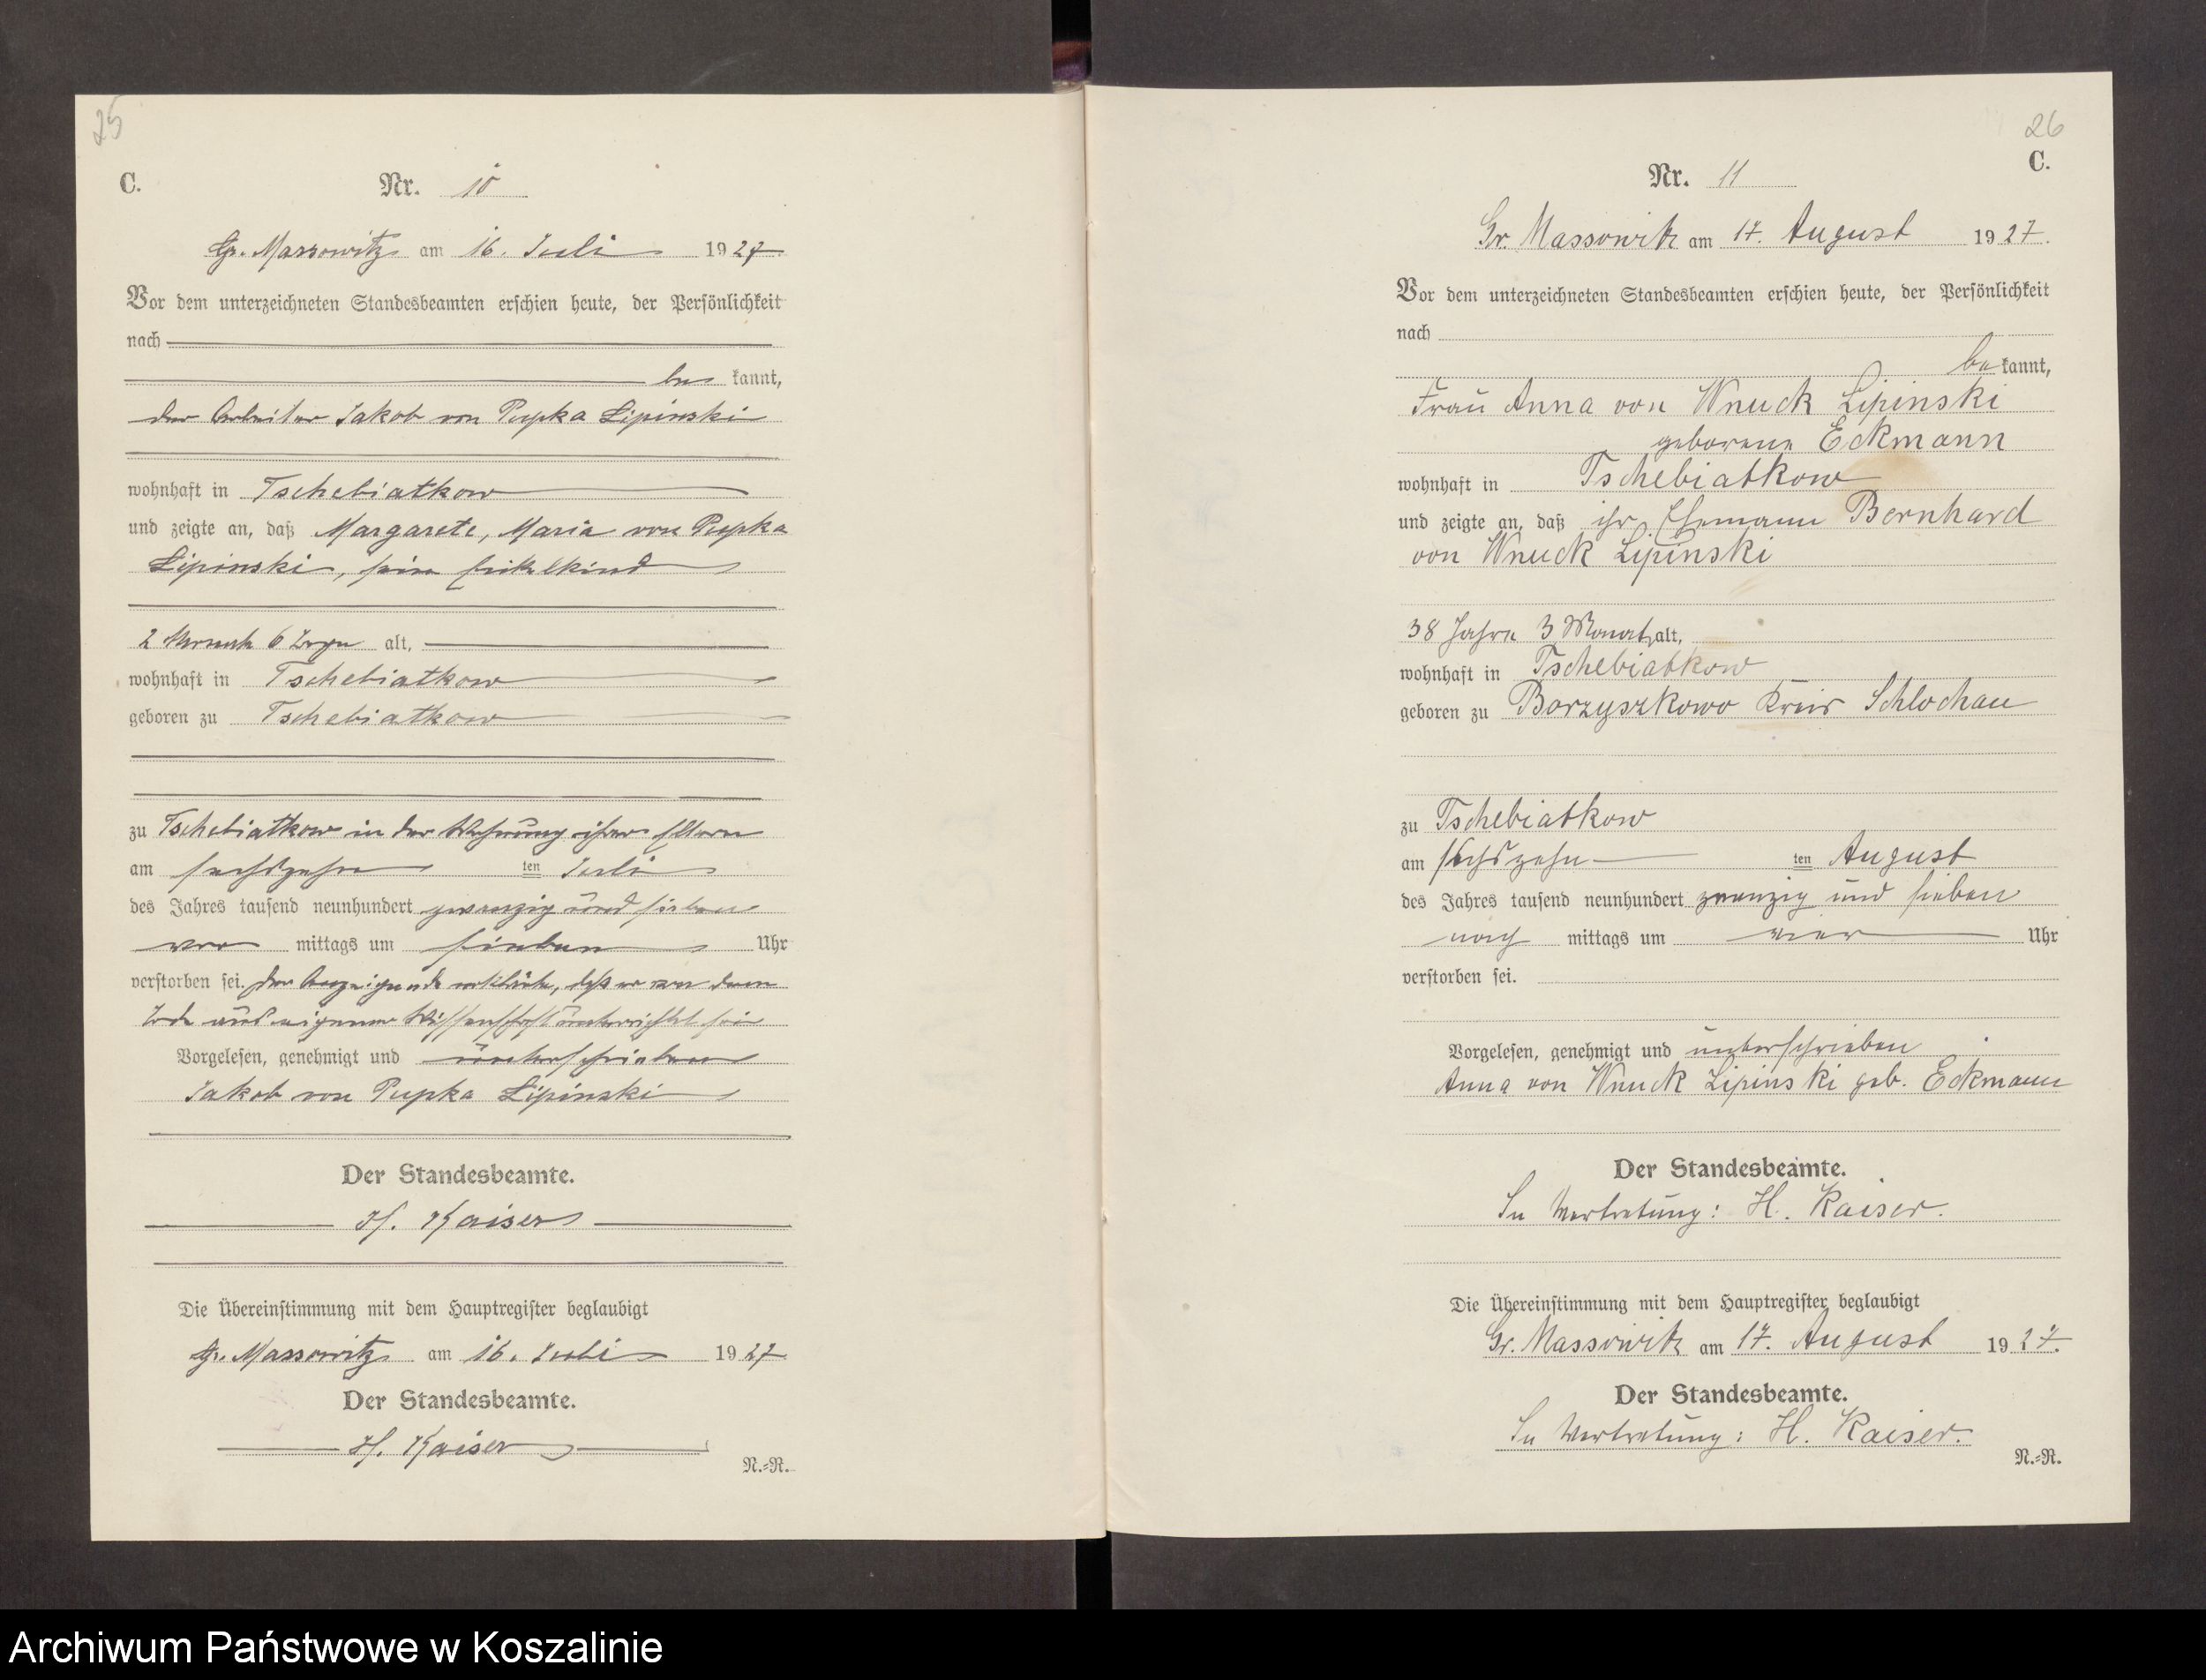 25
C.
Nr. 10
Gr. Massowitz am 16. Juli 1927
Vor dem unterzeichneten Standesbeamten erschien heute, der Persönlichkeit
nach
be kannt,
der Arbeiter Jakob von Pupka Lipinski
wohnhaft in Tschebiatkow
und zeigte an, daß Margarete, Maria von Pupka
Lipinski, sein Enkelkind
2 Monate 6 Tage alt,
wohnhaft in Tschebiatkow
geboren zu Tschebiatkow
zu Tschebiatkow in der Wohnung ihrer Eltern
am sechszehn ten Juli
des Jahres tausend neunhundert zwanzig und sieben
vor mittags um sieben Uhr
verstorben sei. Der Anzeigende erklärte, daß er von dem
Tode aus eigener Wissenschaft unterrichtet sei
Vorgelesen, genehmigt und unterschrieben
Jakob von Pupka Lipinski
Der Standesbeamte.
H. Kaiser
Die Übereinstimmung mit dem Hauptregister beglaubigt
Gr. Massowitz am 16. Juli 1927
Der Standesbeamte.
H. Kaiser
N.-R.
26
C.
Nr. 11
Gr. Massowitz am 17. August 1927.
Vor dem unterzeichneten Standesbeamten erschien heute, der Persönlichkeit
nach
be kannt,
Frau Anna von Wnuck Lipinski
geborene Eckmann
wohnhaft in Tschebiatkow
und zeigte an, daß ihr Ehemann Bernhard
von Wnuck Lipinski
38 Jahre 3 Monate alt,
wohnhaft in Tschebiatkow
geboren zu Borzyszkowo Kreis Schlochau
zu Tschebiatkow
am sechszehn ten August
des Jahres tausend neunhundert zwanzig und sieben
nach mittags um vier Uhr
verstorben sei.
Vorgelesen, genehmigt und unterschrieben
Anna von Wnuck Lipinski geb. Eckmann
Der Standesbeamte.
In Vertretung: H. Kaiser.
Die Übereinstimmung mit dem Hauptregister beglaubigt
Gr. Massowitz am 17. August 1927.
Der Standesbeamte.
In Vertretung: H. Kaiser.
N.-R.
Archiwum Państwowe w Koszalinie